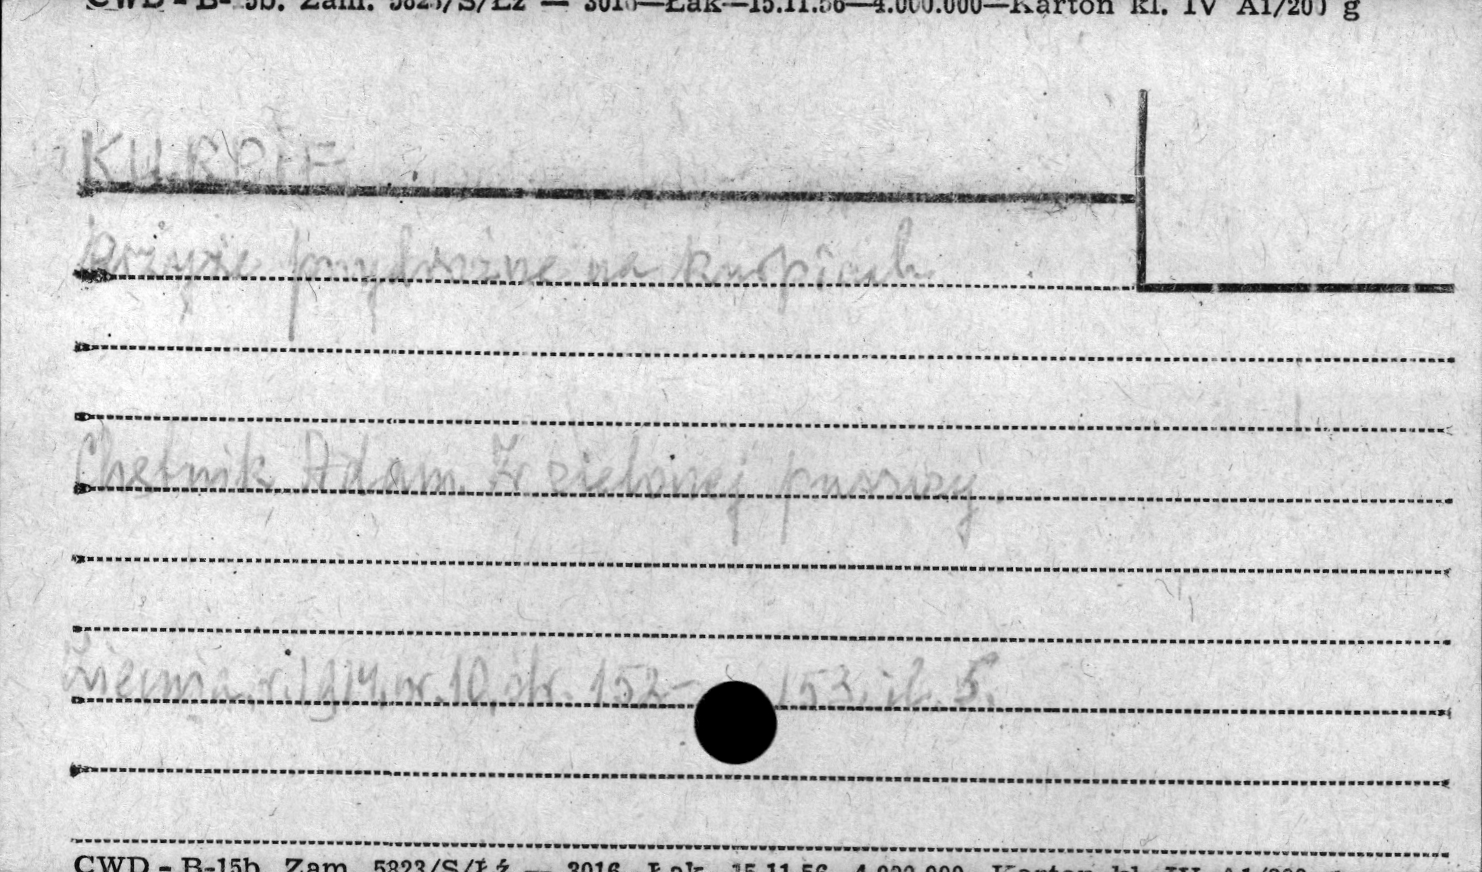 CWD - B-15b. Zam. 5823/S/Łź — 3016—Łak—15.11.56—4.000.000—Karton kl. IV A1/200 g
KURPIE
Krzyże przydrożne na Kurpiach
Chętnik Adam. Z zielonej puszczy.
Ziemia. r. 1914. nr. 10, str. 152- 153. il. 5.
CWD - B-15b. Zam. 5823/S/Łź — 3016 Łak 15.11.56 4.000.000 Karton kl. IV A1/200 g